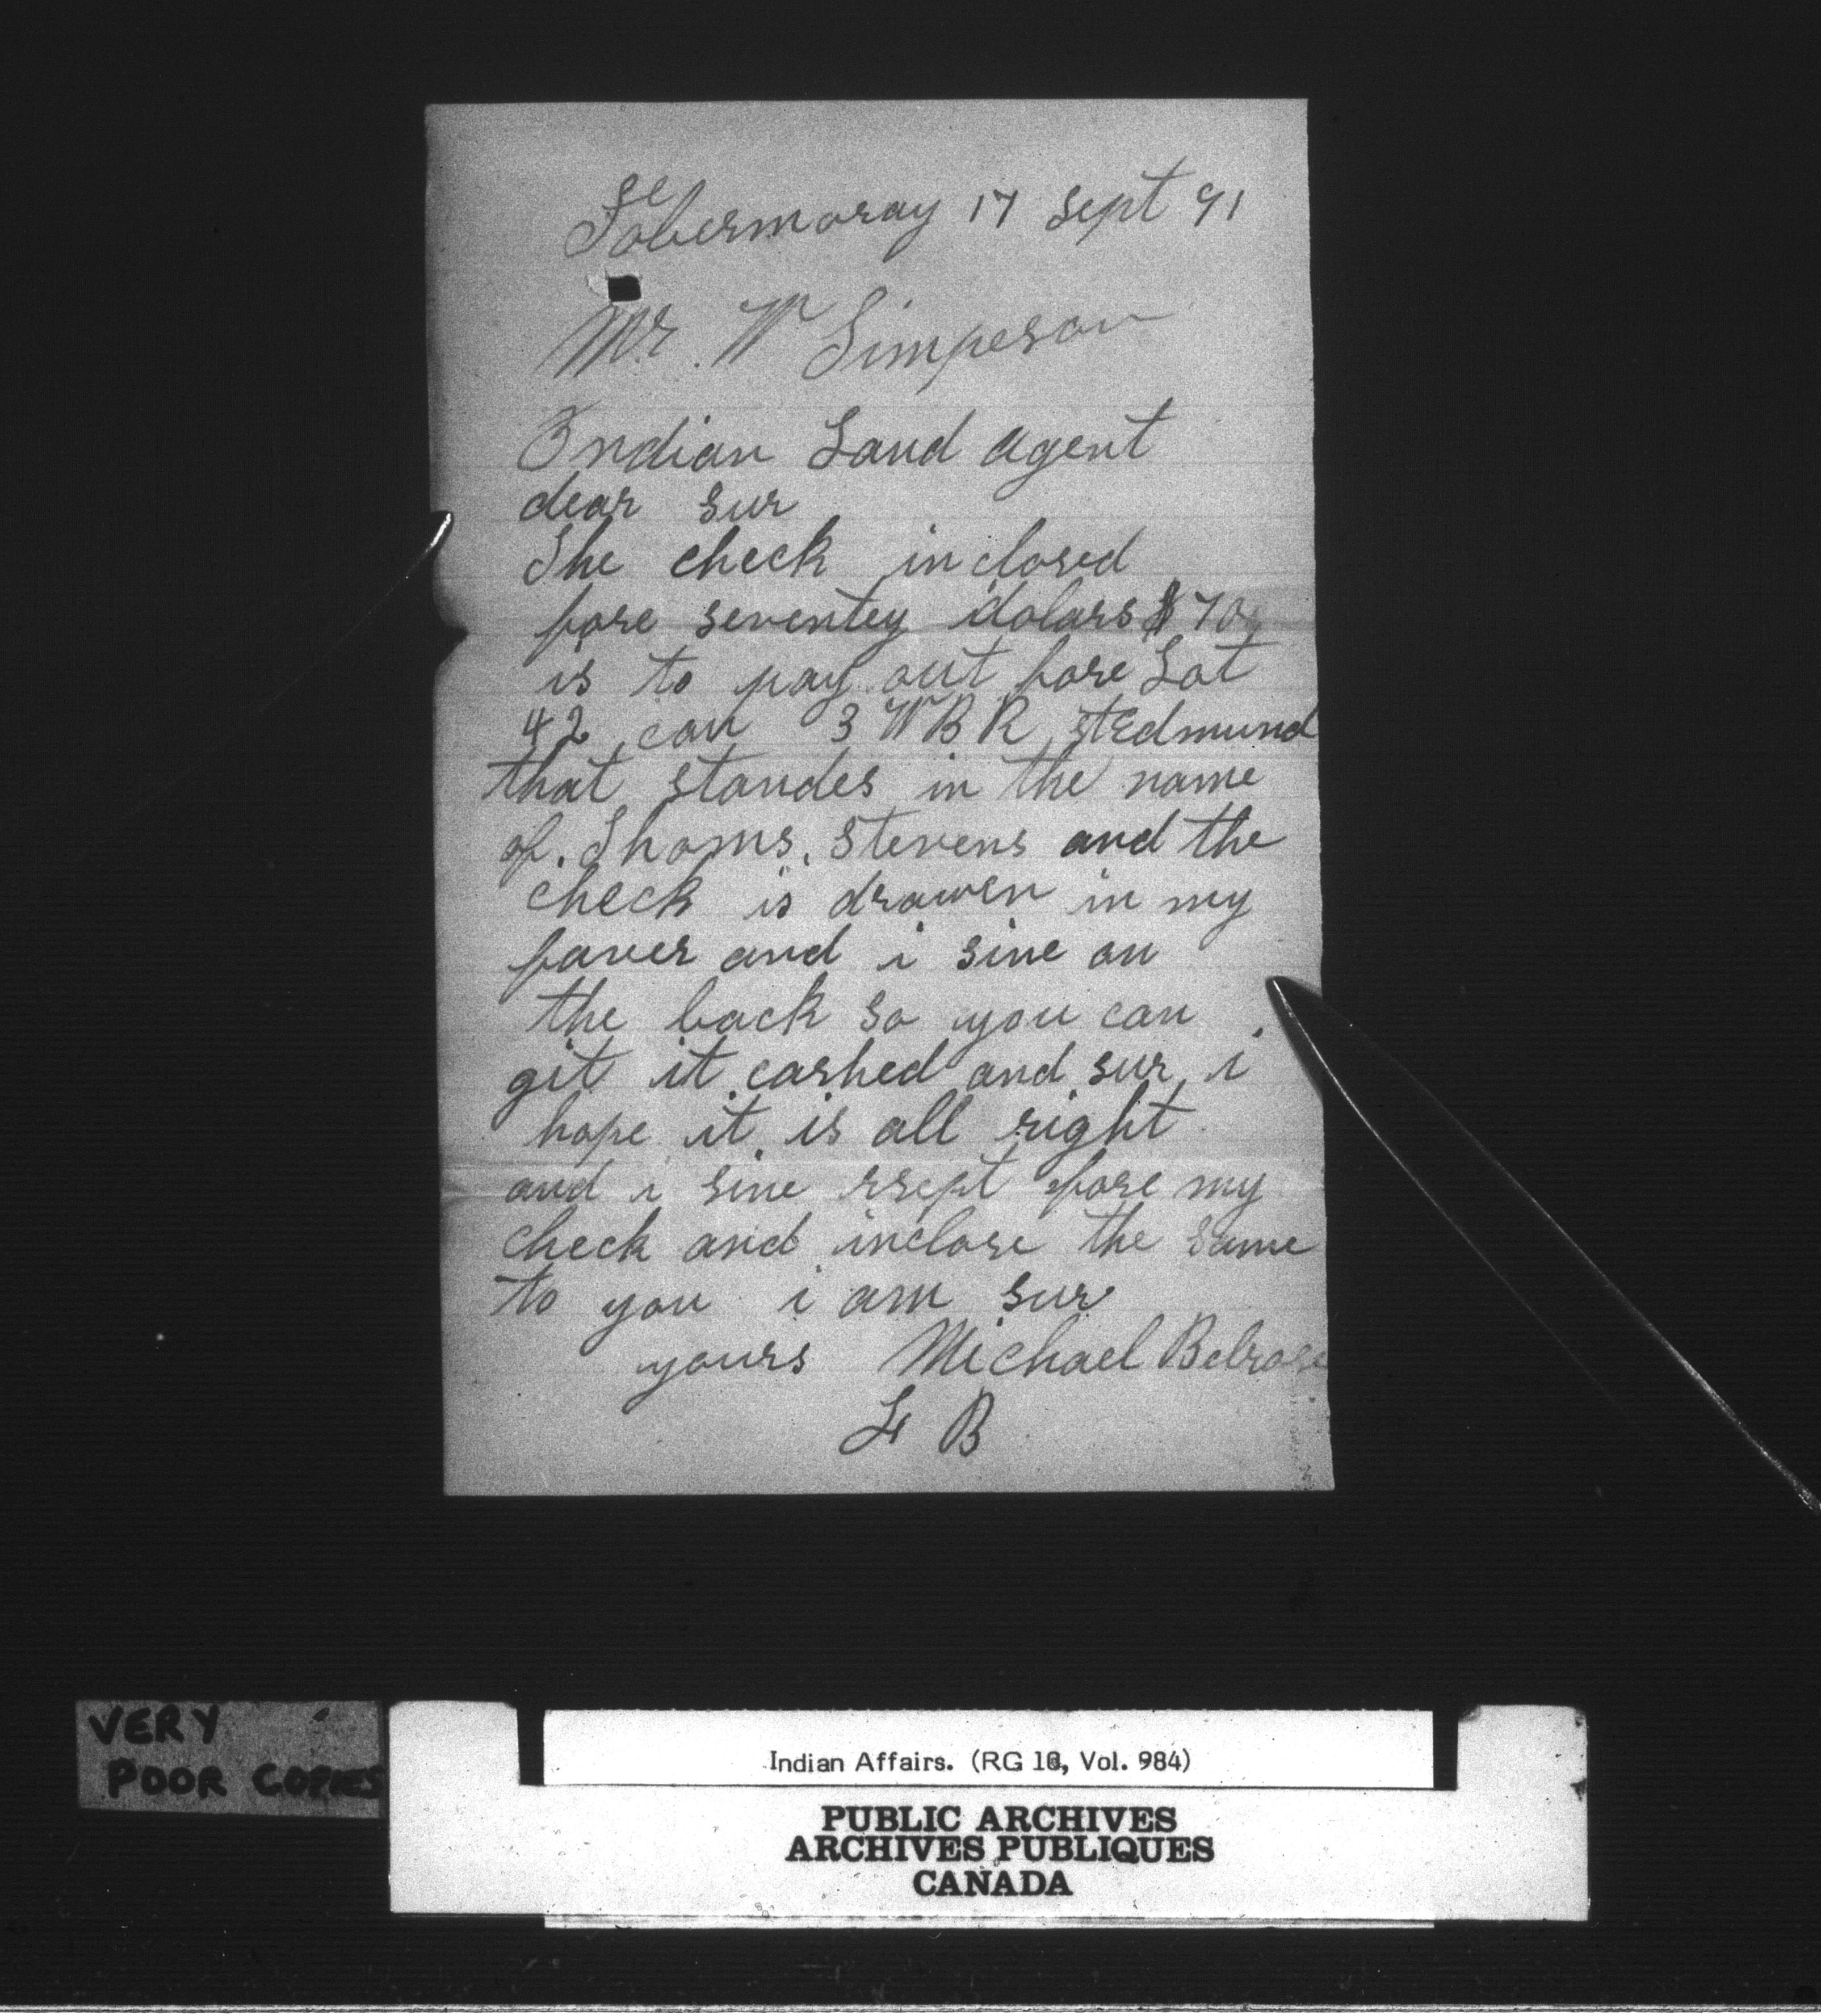 Tobermoray 17 Sept 91
Mr. W Simpeson
Indian Land agent
dear sur
The check inclosed
fore seventey dolars $70
is to pay out fore Lot
42 con 3 W B R St Edmund
that standes in the name
of. Thoms. Stevens and the
check is drawen in my
faver and i sine on
the back so you can
git it cashed and sur i
hope it is all right
and i sine rsept fore my
check and inclose the same
to you i am sur
yours Michael Belrose
B
VERY
POOR COPIES
Indian Affairs. (RG 10, Vol. 984)
PUBLIC ARCHIVES
ARCHIVES PUBLIQUES
CANADA